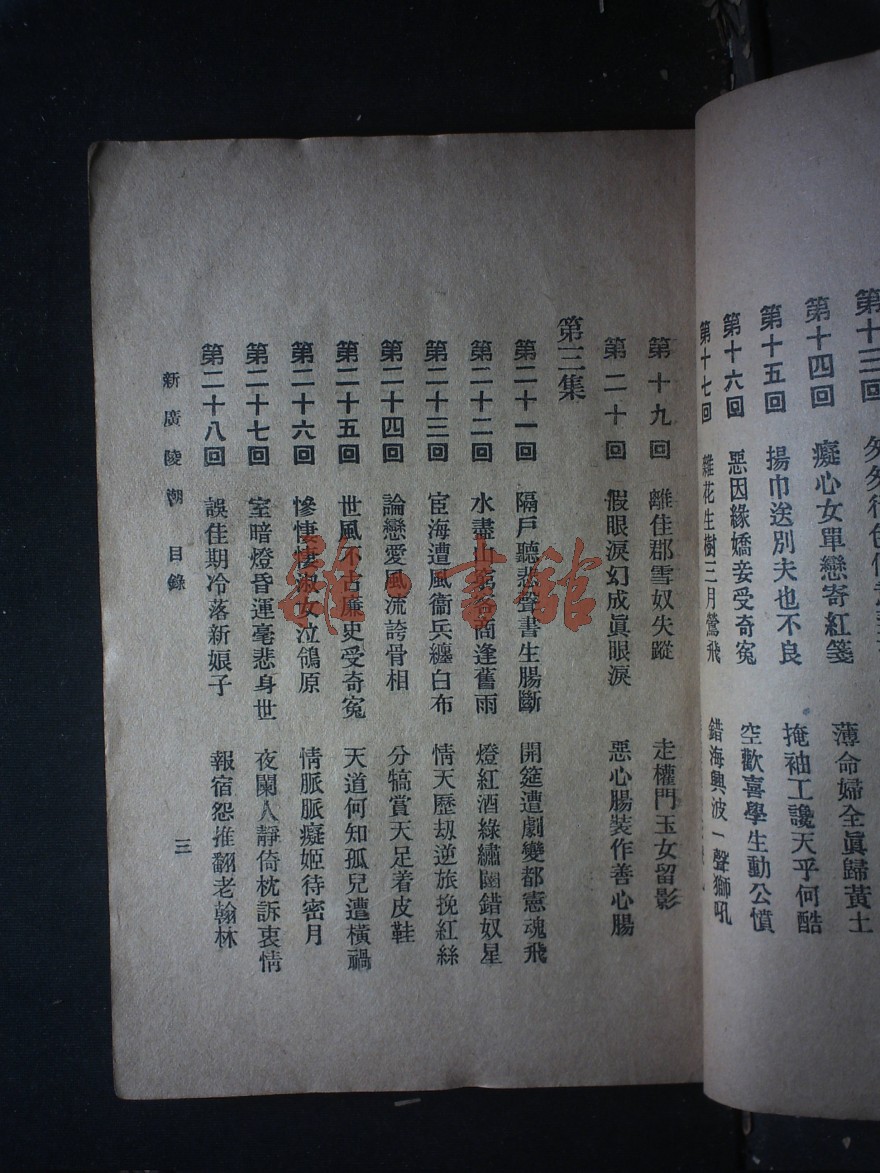 第十三回
第十四回　癡心女單戀寄紅箋　薄命婦全眞歸黃土
第十五回　揚巾送別夫也不良　掩袖工讒天乎何酷
第十六回　惡因緣嬌妾受奇冤　空歡喜學生動公憤
第十七回　雜花生樹三月鶯飛　錯海興波一聲獅吼
第十九回　離佳郡雪奴失蹤　走權門玉女留影
第二十回　假眼淚幻成眞眼淚　惡心腸裝作善心腸
第三集
第二十一回　隔戶聽悲聲書生腸斷　開筵遭劇變都憲魂飛
第二十二回　水盡山窮客商逢舊雨　燈紅酒綠繡闥錯奴星
第二十三回　宦海遭風衞兵纏白布　情天歷劫逆旅挽紅絲
第二十四回　論戀愛風流誇骨相　分犒賞天足着皮鞋
第二十五回　世風不古廉史受奇冤　天道何知孤兒遭橫禍
第二十六回　慘悽悽淑女泣鴒原　情脈脈癡姬待密月
第二十七回　室暗燈昏運毫悲身世　夜闌人靜倚枕訴衷情
第二十八回　誤佳期冷落新娘子　報宿怨推翻老翰林
新廣陵潮　目錄
三
雜·書館